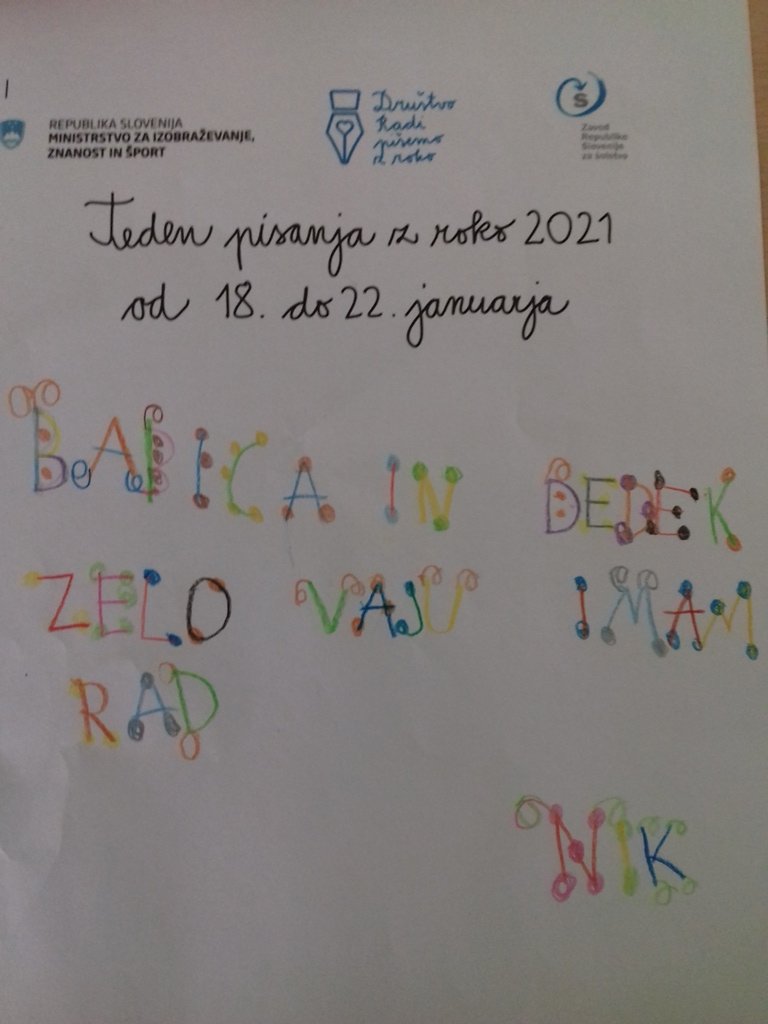 REPUBLIKA SLOVENIJA
MINISTRSTVO ZA IZOBRAŽEVANJE,
ZNANOST IN ŠPORT
Društvo
Radi
pišemo
z roko
Š
Zavod
Republike
Slovenije
za šolstvo
Teden pisanja z roko 2021
od 18. do 22. januarja
BABICA IN DEDEK
ZELO VAJU IMAM
RAD
NIK